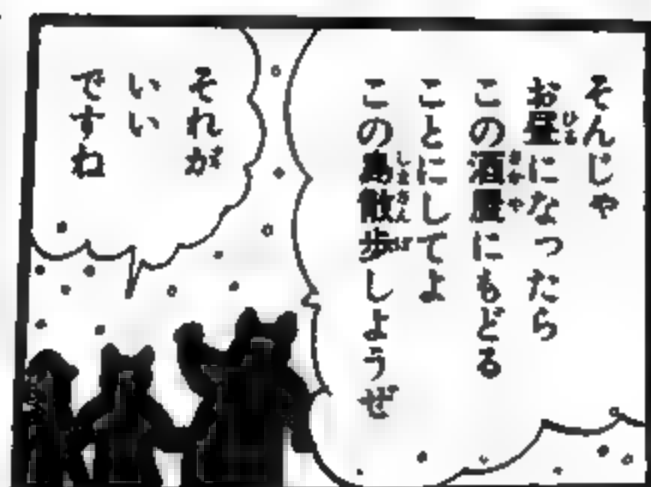 そんじゃ
お昼になったら
この酒屋にもどる
ことにしてよ
この島散歩しようぜ
それが
いい
ですね